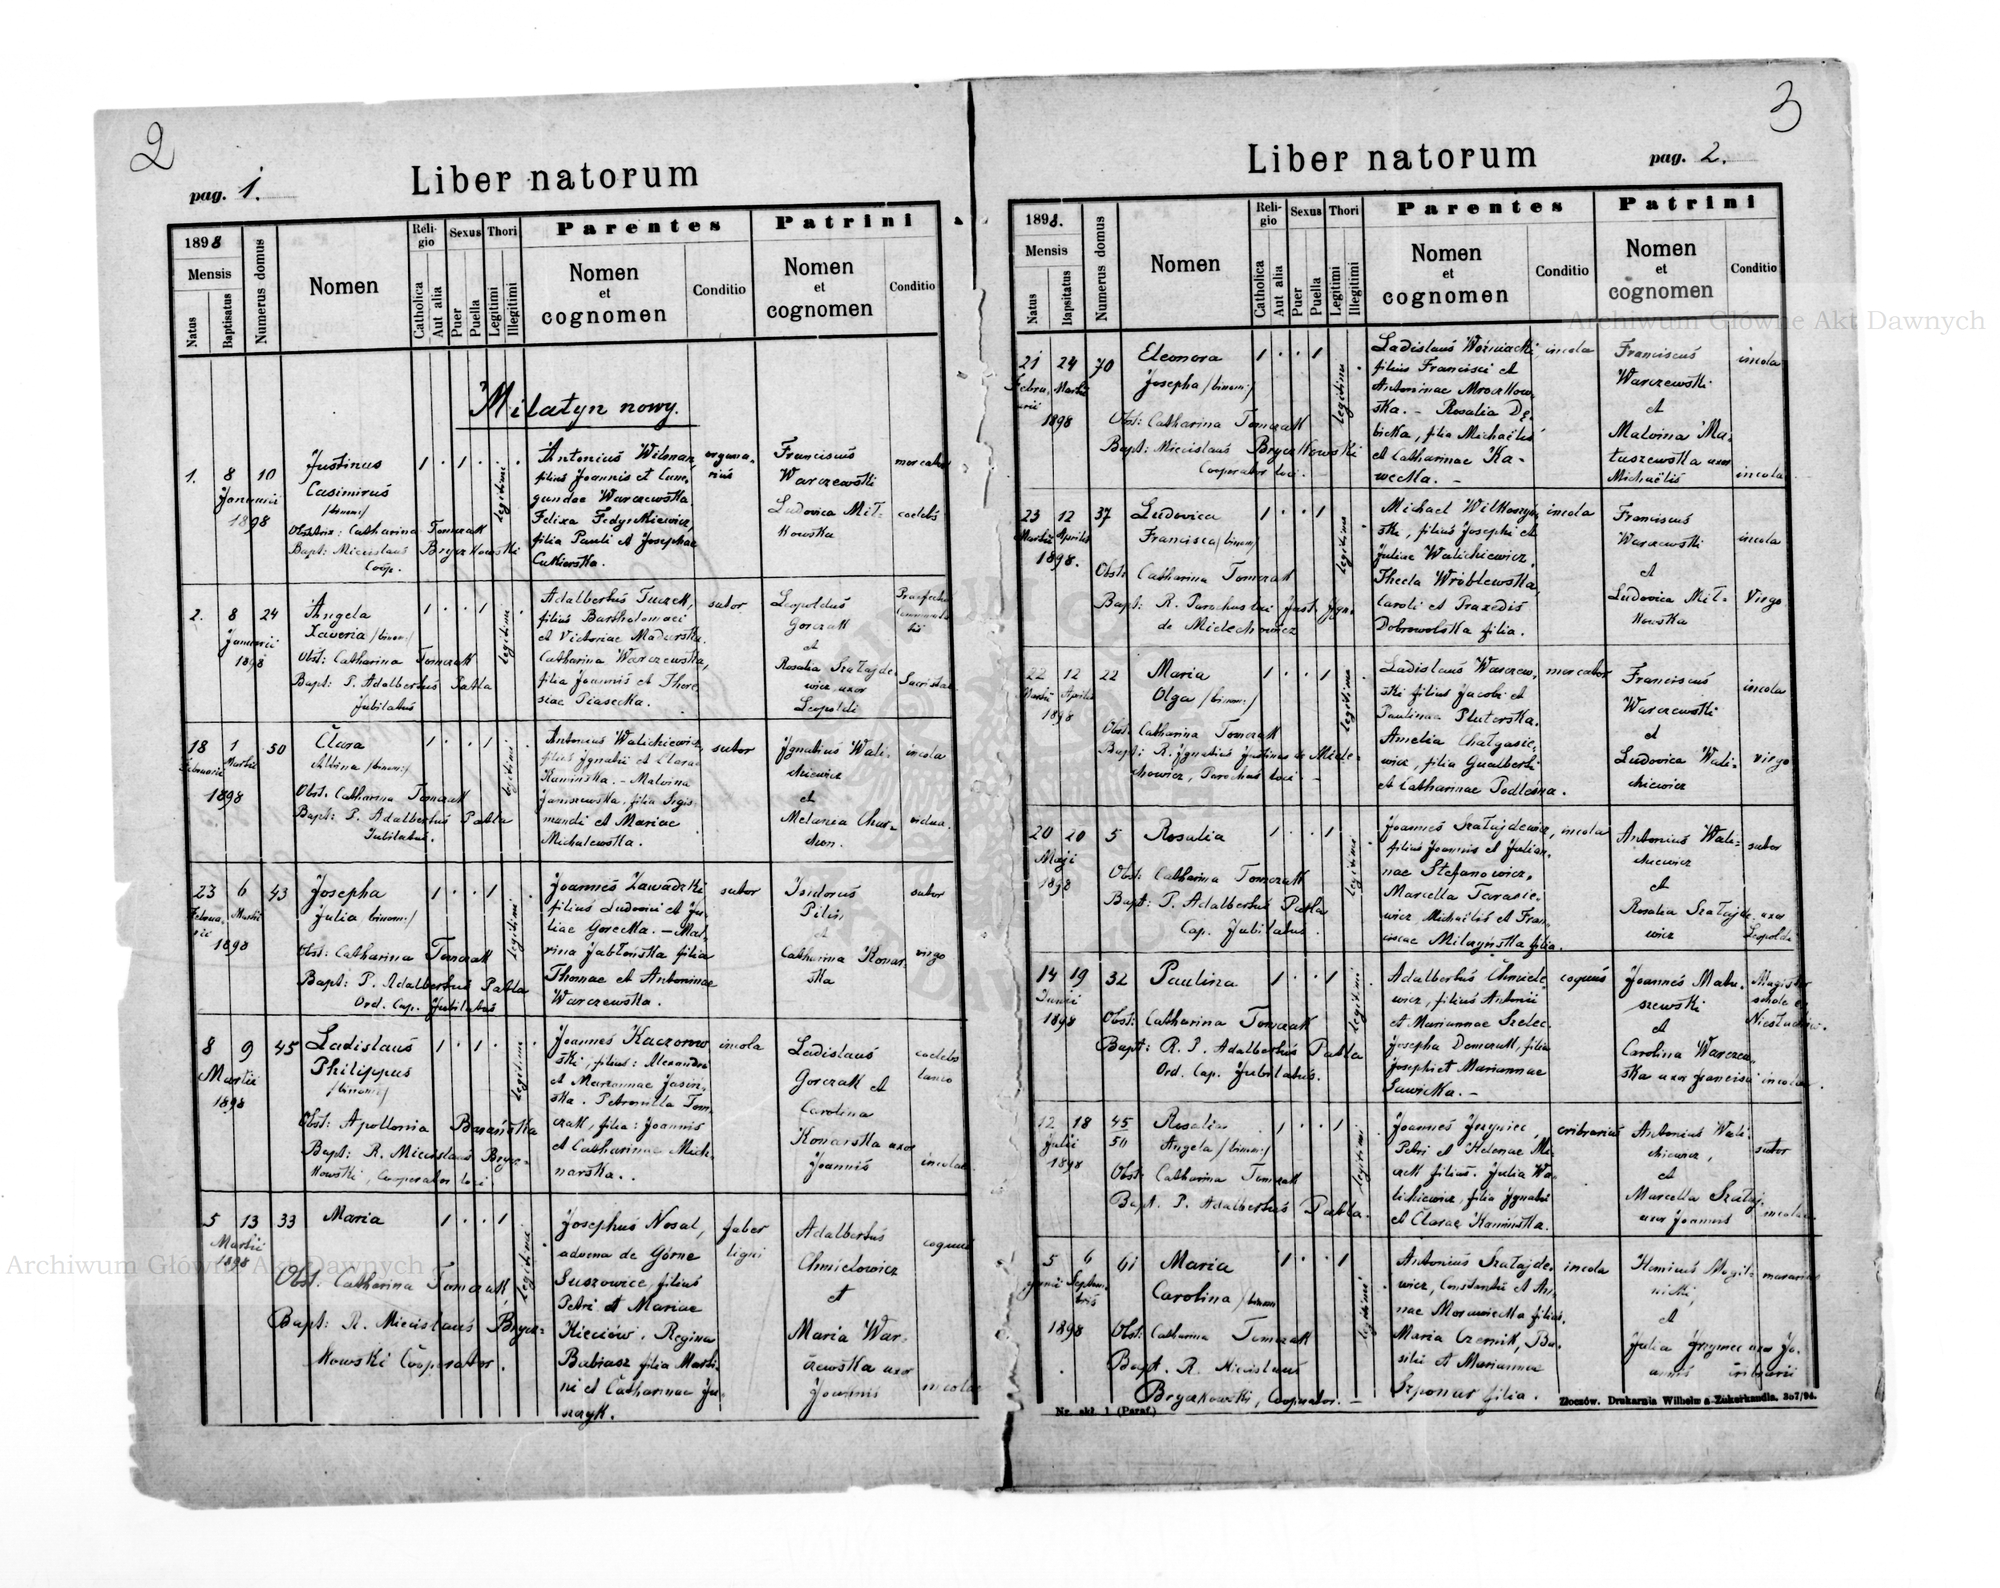 2
pag. 1.
Liber natorum
1898
Mensis
Natus
Baptisatus
Numerus domus
Nomen
Religio
Catholica
Aut alia
Sexus
Puer
Puella
Thori
Legitimi
Illegitimi
Parentes
Nomen
et
cognomen
Conditio
Patrini
Nomen
et
cognomen
Conditio
Milatyn nowy.
1. 8 10
Januarii
1898
Justinus
Casimirus
/binom:/
Obstetrix: Catharina Tomczak
Bapt: Miecislaus Bryczkowski
Coop.
legitimi
Antonius Wilman
filius Joannis et Cune-
gundae Warczewska
Felixa Fedyńkiewicz,
filia Pauli et Josephae
Cukierska.
organa-
rius
Franciscus
Warczewski
Ludovica Mił-
kowska
mercator
caelebs
2. 8 24
Januarii
1898
Angela
Xaveria /binom:/
Obst: Catharina Tomczak
Bapt: P. Adalbertus Patla
Jubilatus
legitimi
Adalbertus Tuczek,
filius Bartholomaei
et Victoriae Maderska.
Catharina Warczewska,
filia Joannis et There-
siae Piasecka.
sutor
Leopoldus
Gorczak
et
Rosalia Szałajde
wicz uxor
Leopoldi
18 1 50
Februarii Martii
1898
Clara
Albina /binom:/
Obst. Catharina Tomczak
Bapt: P. Adalbertus Patla
Jubilatus.
legitimi
Antonius Walichiewicz,
filius Ignatii et Clarae
Kamińska. - Malvina
Janiszewska, filia Sigis-
mundi et Mariae
Michalewska.
sutor
Ignatius Wali-
chiewicz
et
Melania Char-
chon.
incola
vidua
23 6 43
Februa- Martii
rii
1898
Josepha
Julia binom:/
Obst: Catharina Tomczak
Bapt: P. Adalbertus Patla
Ord. Cap. Jubilatus
legitimi
Joannes Zawadzki
filius Ludovici et Ju-
liae Gorecka. - Mal-
vina Jabłońska filia
Thomae et Antoninae
Warczewska.
sutor
Isidorus
Pilis,
et
Catharina Konar-
ska
sutor
virgo
8 9 45
Martii
1898
Ladislaus
Philippus
/binom:/
Obst: Apollonia Barańska
Bapt: R. Miecislaus Brycz-
kowski, Cooperator loci
legitimi
Joannes Kaczorow
ski, filius: Alexandri
et Mariannae Jasiń-
ska. Petronilla Tom-
czak, filia: Joannis
et Catharinae Mich-
narska.
incola
Ladislaus
Gorczak et
Carolina
Konarska uxor
Joannis
caelebs
incolae
5 13 33
Martii
1898
Maria
Obst. Catharina Tomczak,
Bapt: R. Miecislaus Brycz-
kowski Cooperator.
legitimi
Josephus Nosal,
advena de Górne
Suszowice, filius
Petri et Mariae
Kieciów. Regina
Babiasz filia Marti-
ni et Catharinae Ju-
szczyk.
faber
ligni
Adalbertus
Chmielowicz
et
Maria War-
czewska uxor
Joannis
coquus
incolae
3
Liber natorum
pag. 2.
1898.
Mensis
Natus
Baptisatus
Numerus domus
Nomen
Religio
Catholica
Aut alia
Sexus
Puer
Puella
Thori
Legitimi
Illegitimi
Parentes
Nomen
et
cognomen
Conditio
Patrini
Nomen
et
cognomen
Conditio
21 24 70
Febru- Martii
arii
1898
Eleonora
Josepha /binom:/
Obst: Catharina Tomczak
Bapt: Miecislaus Bryczkowski
Cooperator loci.
legitimi
Ladislaus Woźniacki
filius Francisci et
Antoninae Mroczkow-
ska. - Rosalia Dę-
bicka, filia Michaëlis
et Catharinae Ka-
wecka. -
incola
Franciscus
Warczewski
et
Malvina Ma-
tuszewska uxor
Michaëlis
incola
incola
23 12 37
Martii Aprilis
1898.
Ludovica
Francisca /binom/
Obst: Catharina Tomczak
Bapt: R. Parochus loci Just. Ign.
de Mielechowicz
legitimi
Michael Wilkoszyń-
ski, filius Josephi et
Juliae Walichiewicz.
Thecla Wróblewska,
Caroli et Praxedis
Dobrowolska filia.
incola
Franciscus
Warczewski
et
Ludovica Mił-
kowska
incola
Virgo
22 12 22
Martii Aprilis
1898
Maria
Olga /binom:/
Obst: Catharina Tomczak
Bapt: R. Ignatius Justinus de Miele-
chowicz, Parochus loci. -
legitimi
Ladislaus Warczew-
ski filius Jacobi et
Paulinae Pluterska.
Amelia Chałgasie-
wicz, filia Gualberti
et Catharinae Podleśna.
mercator
Franciscus
Warczewski
et
Ludovica Wali-
chiewicz
incola
virgo
20 20 5
Maji
1898
Rosalia
Obst: Catharina Tomczak
Bapt: P. Adalbertus Patla
Cap. Jubilatus.
legitimi
Joannes Szałajdewicz,
filius Joannis et Julian-
nae Stefanowicz.
Marcella Tarasie-
wicz Michaëlis et Fran-
ciscae Milczyńska filia.
incola
Antonius Wali-
chiewicz
et
Rosalia Szałajde-
wicz
sutor
uxor
Leopoldi
14 19 32
Junii
1898
Paulina
Obst: Catharina Tomczak
Bapt: R. P. Adalbertus Patla
Ord. Cap. Jubilatus.
legitimi
Adalbertus Chmiele-
wicz, filius Antonii
et Mariannae Szelec.
Josepha Domczuk, filia
Josephi et Mariannae
Sawicka. -
coquus
Joannes Matu-
szewski
et
Carolina Warczew-
ska uxor Francisci
Magister
schole ex
incolae.
12 18 45
50
Julii
1898
Rosalia
Angela /binom:/
Obst: Catharina Tomczak
Bapt. P. Adalbertus Patla.
legitimi
Joannes Jrzyniec,
Petri et Helenae Mi-
czak filius. Julia Wa-
lichiewicz, filia Ignatii
et Clarae Kamińska.
cribrarius
Antonius Wali-
chiewicz,
et
Marcella Szałaj.
uxor Joannis
sutor
incolae
5 6 61
Septem-
bris
1898
Maria
Carolina /binom
Obst: Catharina Tomczak
Bapt. R. Miecislaus
Bryczkowski, Cooperator. -
legitimi
Antonius Szałajde-
wicz, Constantii et An-
nae Morawiecka filius.
Maria Czernik, Ba-
silii et Mariannae
Szponar filia.
incola
et
Julia Jrzyniec uxor Jo-
annis cribrarii
Nr. akt. 1 (Paraf.)
Złoczów. Drukarnia Wilhelma Zukerkandla. 307/94.
Archiwum Główne Akt Dawnych
Archiwum Główne Akt Dawnych